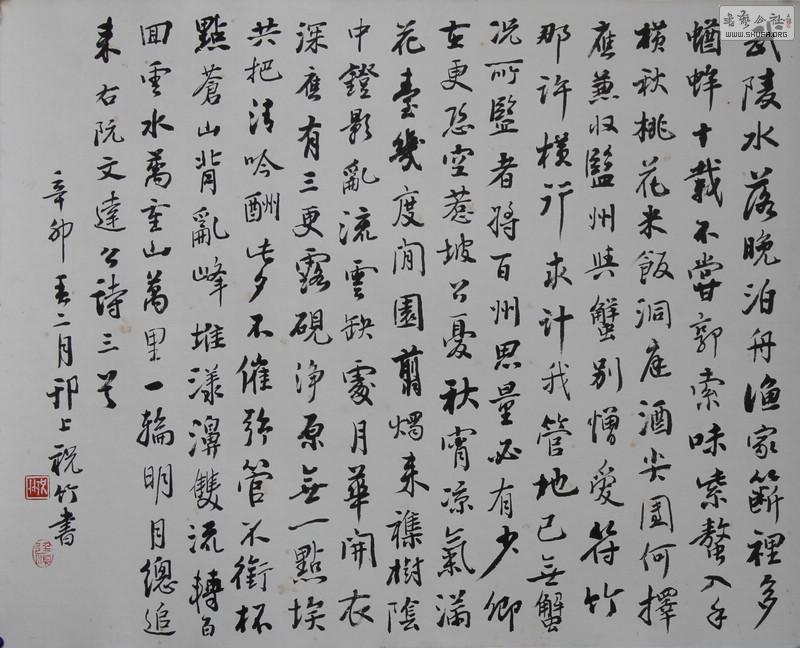 武陵水落晚泊舟漁家籪裡多
蝤蛑十載不嘗郭索味紫螯入手
橫秋桃花米飯洞庭酒尖團何擇
應兼收監州與蟹別憎愛符竹
那許橫行求計我管地已無蟹
況所監者將百州思量必有少卿
在更恐空惹坡公憂秋宵涼氣滿
花臺幾度閒園翦燭来襍樹陰
中鐙影亂流雲缺處月華開衣
深應有三更露硯淨原無一點埃
共把清吟酬此夕不催弦管不銜杯
點蒼山背亂峰堆漾濞雙流轉百
回雲水萬重山萬里一輪明月總追
来右阮文達公詩三首
辛卯春二月邗上祝竹書
书艺公社
WWW.SHUFA.ORG